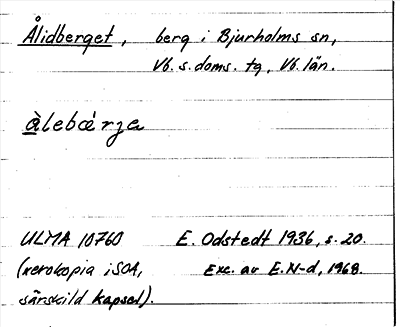 Ålidberget, berg i Bjurholms sn,
Vb. s. doms. tg, Vb. län.
àlebæ̀rja
ULMA 10760 E. Odstedt 1936, s. 20.
(xerokopia i SOA, Exc. av E. N-d, 1968.
särskild kapsel).